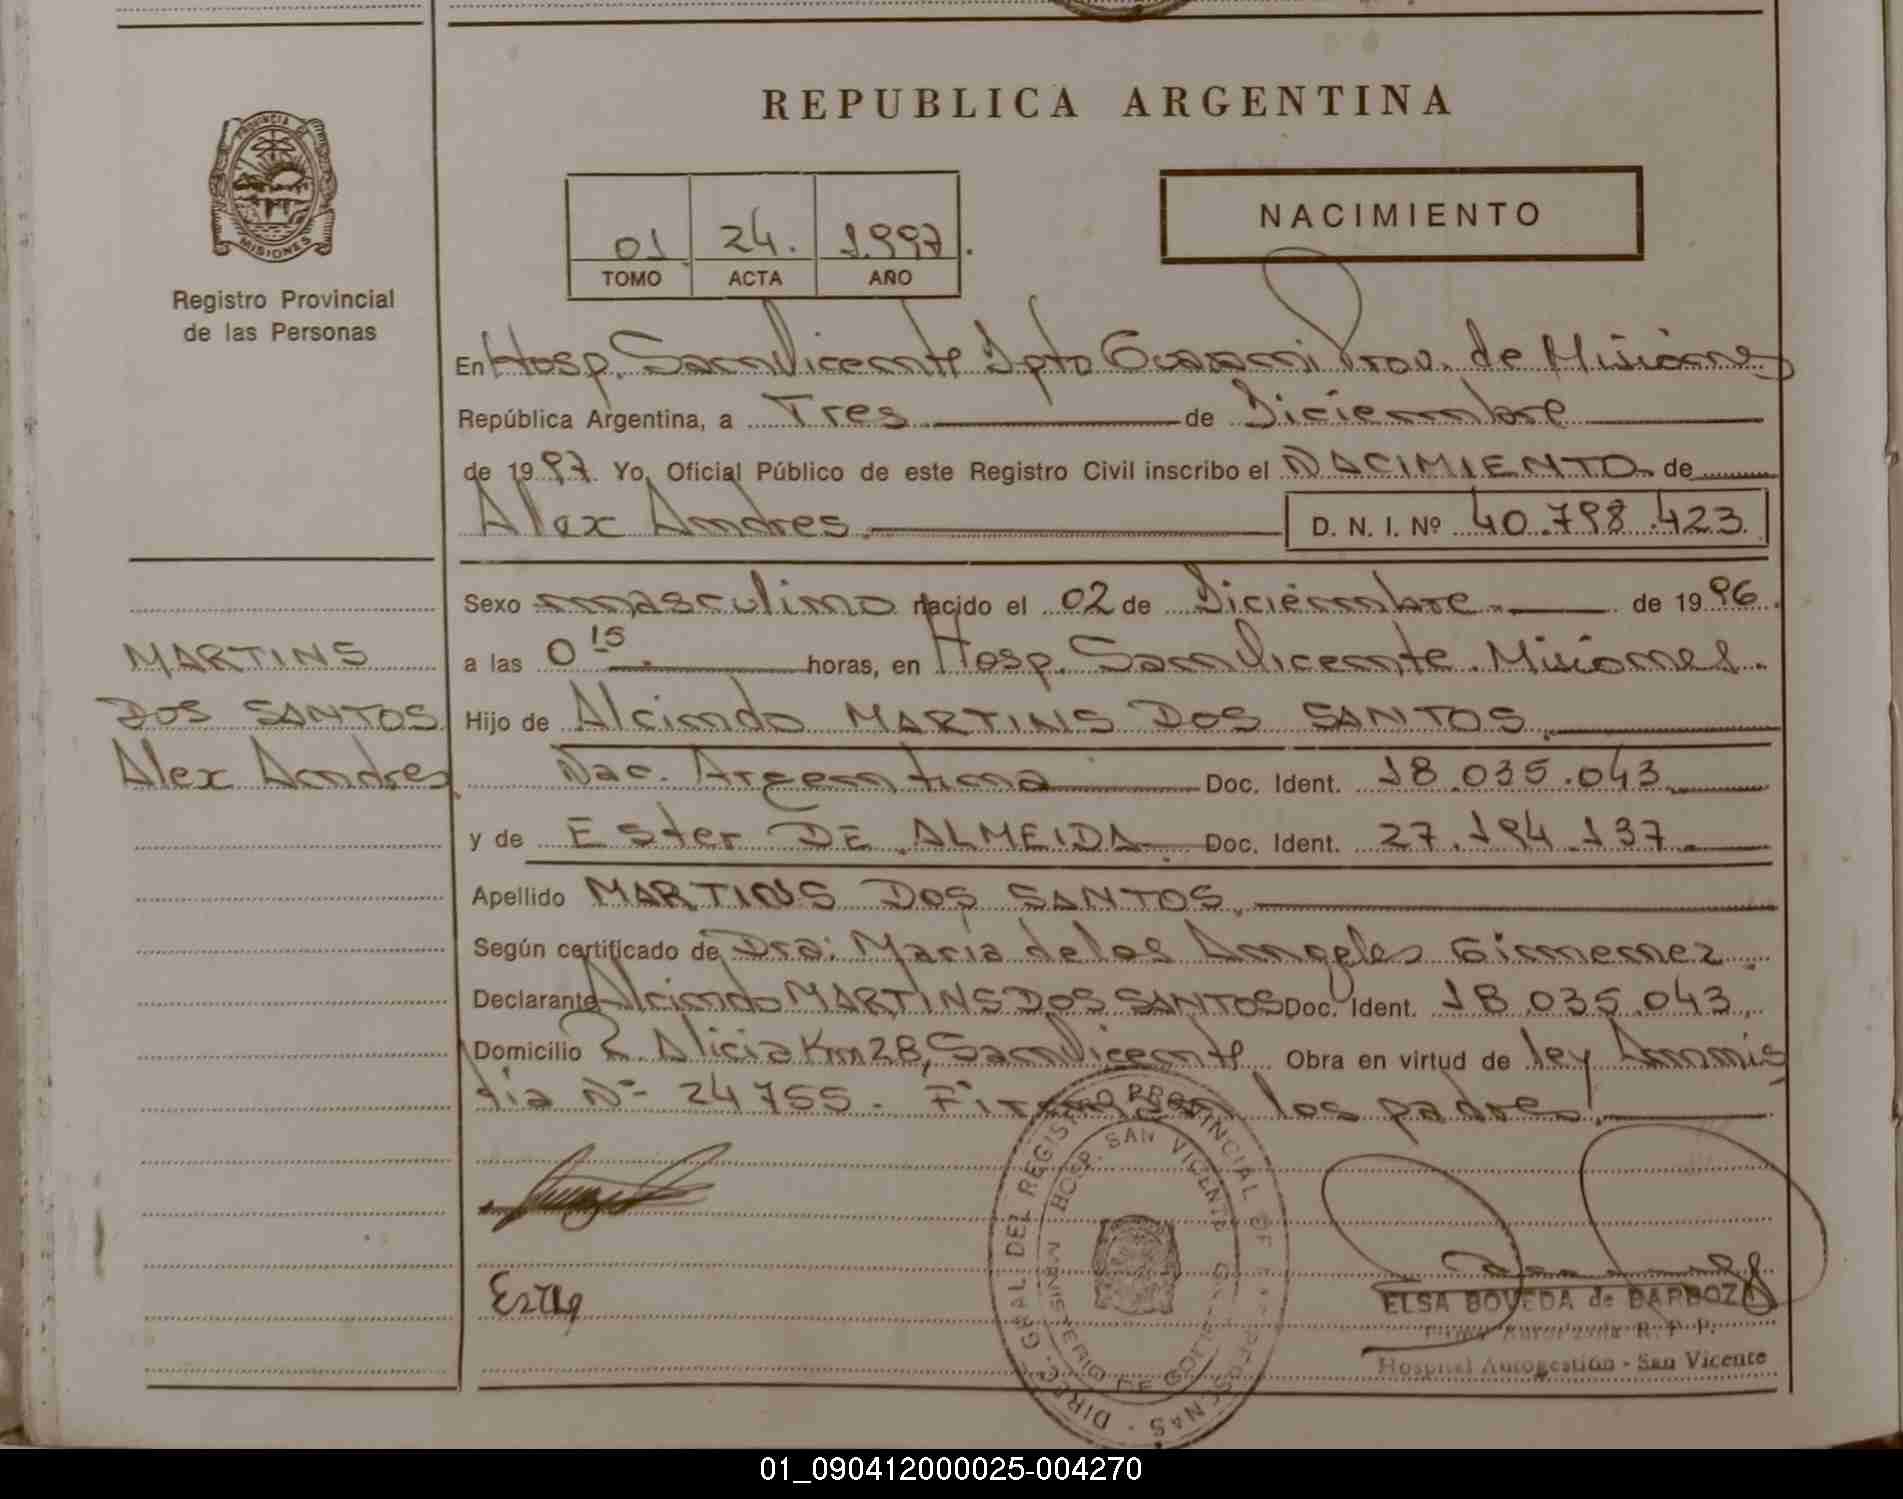 REPUBLICA ARGENTINA
PROVINCIA DE
MISIONES
Registro Provincial
de las Personas
01 24. 1.997.
TOMO ACTA AÑO
NACIMIENTO
En Hosp. San Vicente Dpto Guarani Prov. de Misiones
República Argentina, a Tres de Diciembre
de 1997. Yo, Oficial Público de este Registro Civil inscribo el NACIMIENTO de
Alex Andres D. N. I. Nº 40.798.423.
Sexo masculino nacido el 02 de Diciembre. de 1996.
a las 0 15. horas, en Hosp. San Vicente. Misiones.
Hijo de Alcindo MARTINS DOS SANTOS.
Nac. Argentina Doc. Ident. 18.035.043.
y de Ester DE ALMEIDA. Doc. Ident. 27.194.137.
Apellido MARTINS DOS SANTOS.
Según certificado de Dra: Maria de los Angeles Gimenez.
Declarante Alcindo MARTINS DOS SANTOS Doc. Ident. 18.035.043.
Domicilio P. Alicia Km 28, San Vicente. Obra en virtud de ley Amnis
tia Nº 24755. Firman los padres.
MARTINS
DOS SANTOS
Alex Andres.
Ester
DIREC. GRAL DEL REGISTRO PROVINCIAL DE LAS PERSONAS
HOSP. SAN VICENTE
MINISTERIO DE GOBIERNO
ELSA BOVEDA de BARBOZA
Firma Autorizada R. P. P.
Hospital Autogestión - San Vicente
01_090412000025-004270